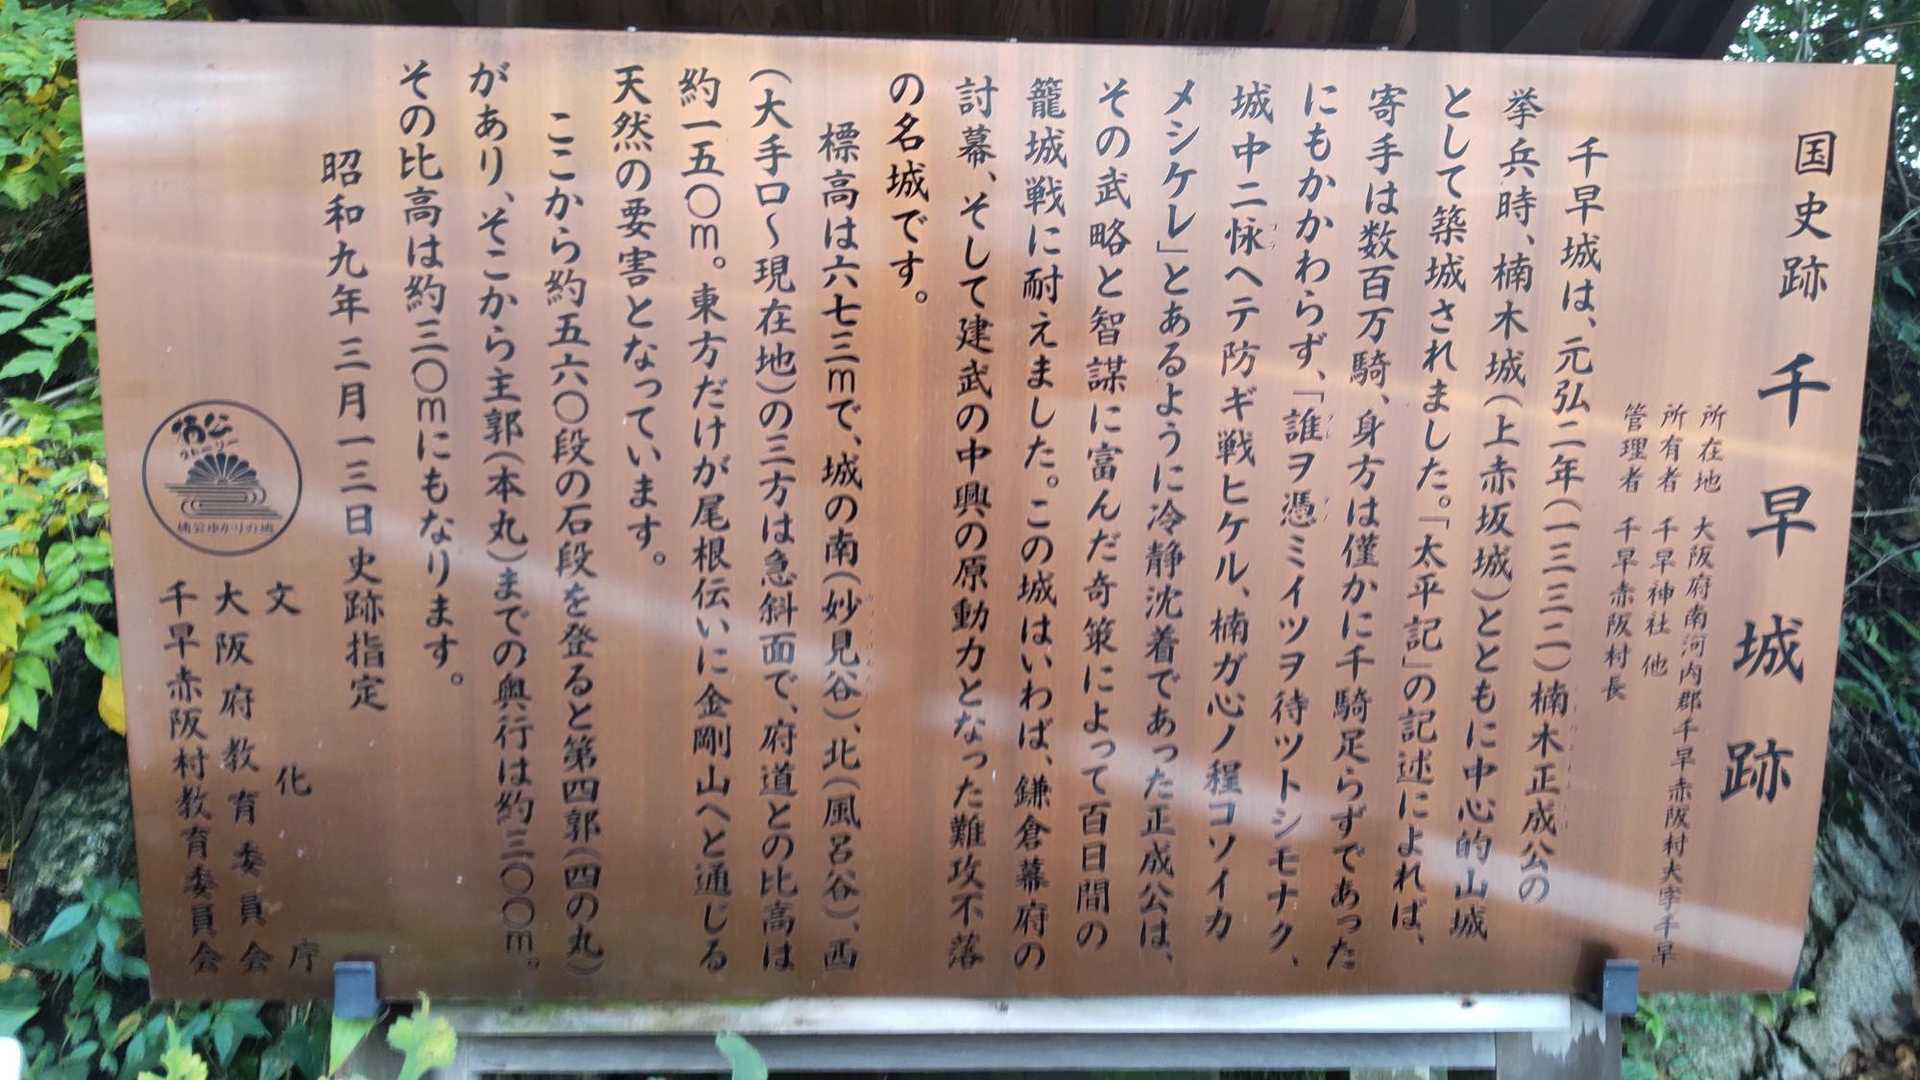 国史跡 千早城跡
所在地 大阪府南河内郡千早赤阪村大字千早
所有者 千早神社 他
管理者 千早赤阪村長
千早城は、元弘二年(一三三二)楠木正成公の
挙兵時、楠木城(上赤坂城)とともに中心的山城
として築城されました。「太平記」の記述によれば、
寄手は数百万騎、身方は僅かに千騎足らずであった
にもかかわらず、「誰ヲ憑ミイツヲ待ツトシモナク、
城中ニ怺ヘテ防ギ戦ヒケル、楠ガ心ノ程コソイカ
メシケレ」とあるように冷静沈着であった正成公は、
その武略と智謀に富んだ奇策によって百日間の
籠城戦に耐えました。この城はいわば、鎌倉幕府の
討幕、そして建武の中興の原動力となった難攻不落
の名城です。
標高は六七三mで、城の南(妙見谷)、北(風呂谷)、西
(大手口〜現在地)の三方は急斜面で、府道との比高は
約一五〇m。東方だけが尾根伝いに金剛山へと通じる
天然の要害となっています。
ここから約五六〇段の石段を登ると第四郭(四の丸)
があり、そこから主郭(本丸)までの奥行は約三〇〇m。
その比高は約三〇mにもなります。
昭和九年三月一三日史跡指定
文化庁
大阪府教育委員会
千早赤阪村教育委員会
楠公
ストーリー
楠公ゆかりの地